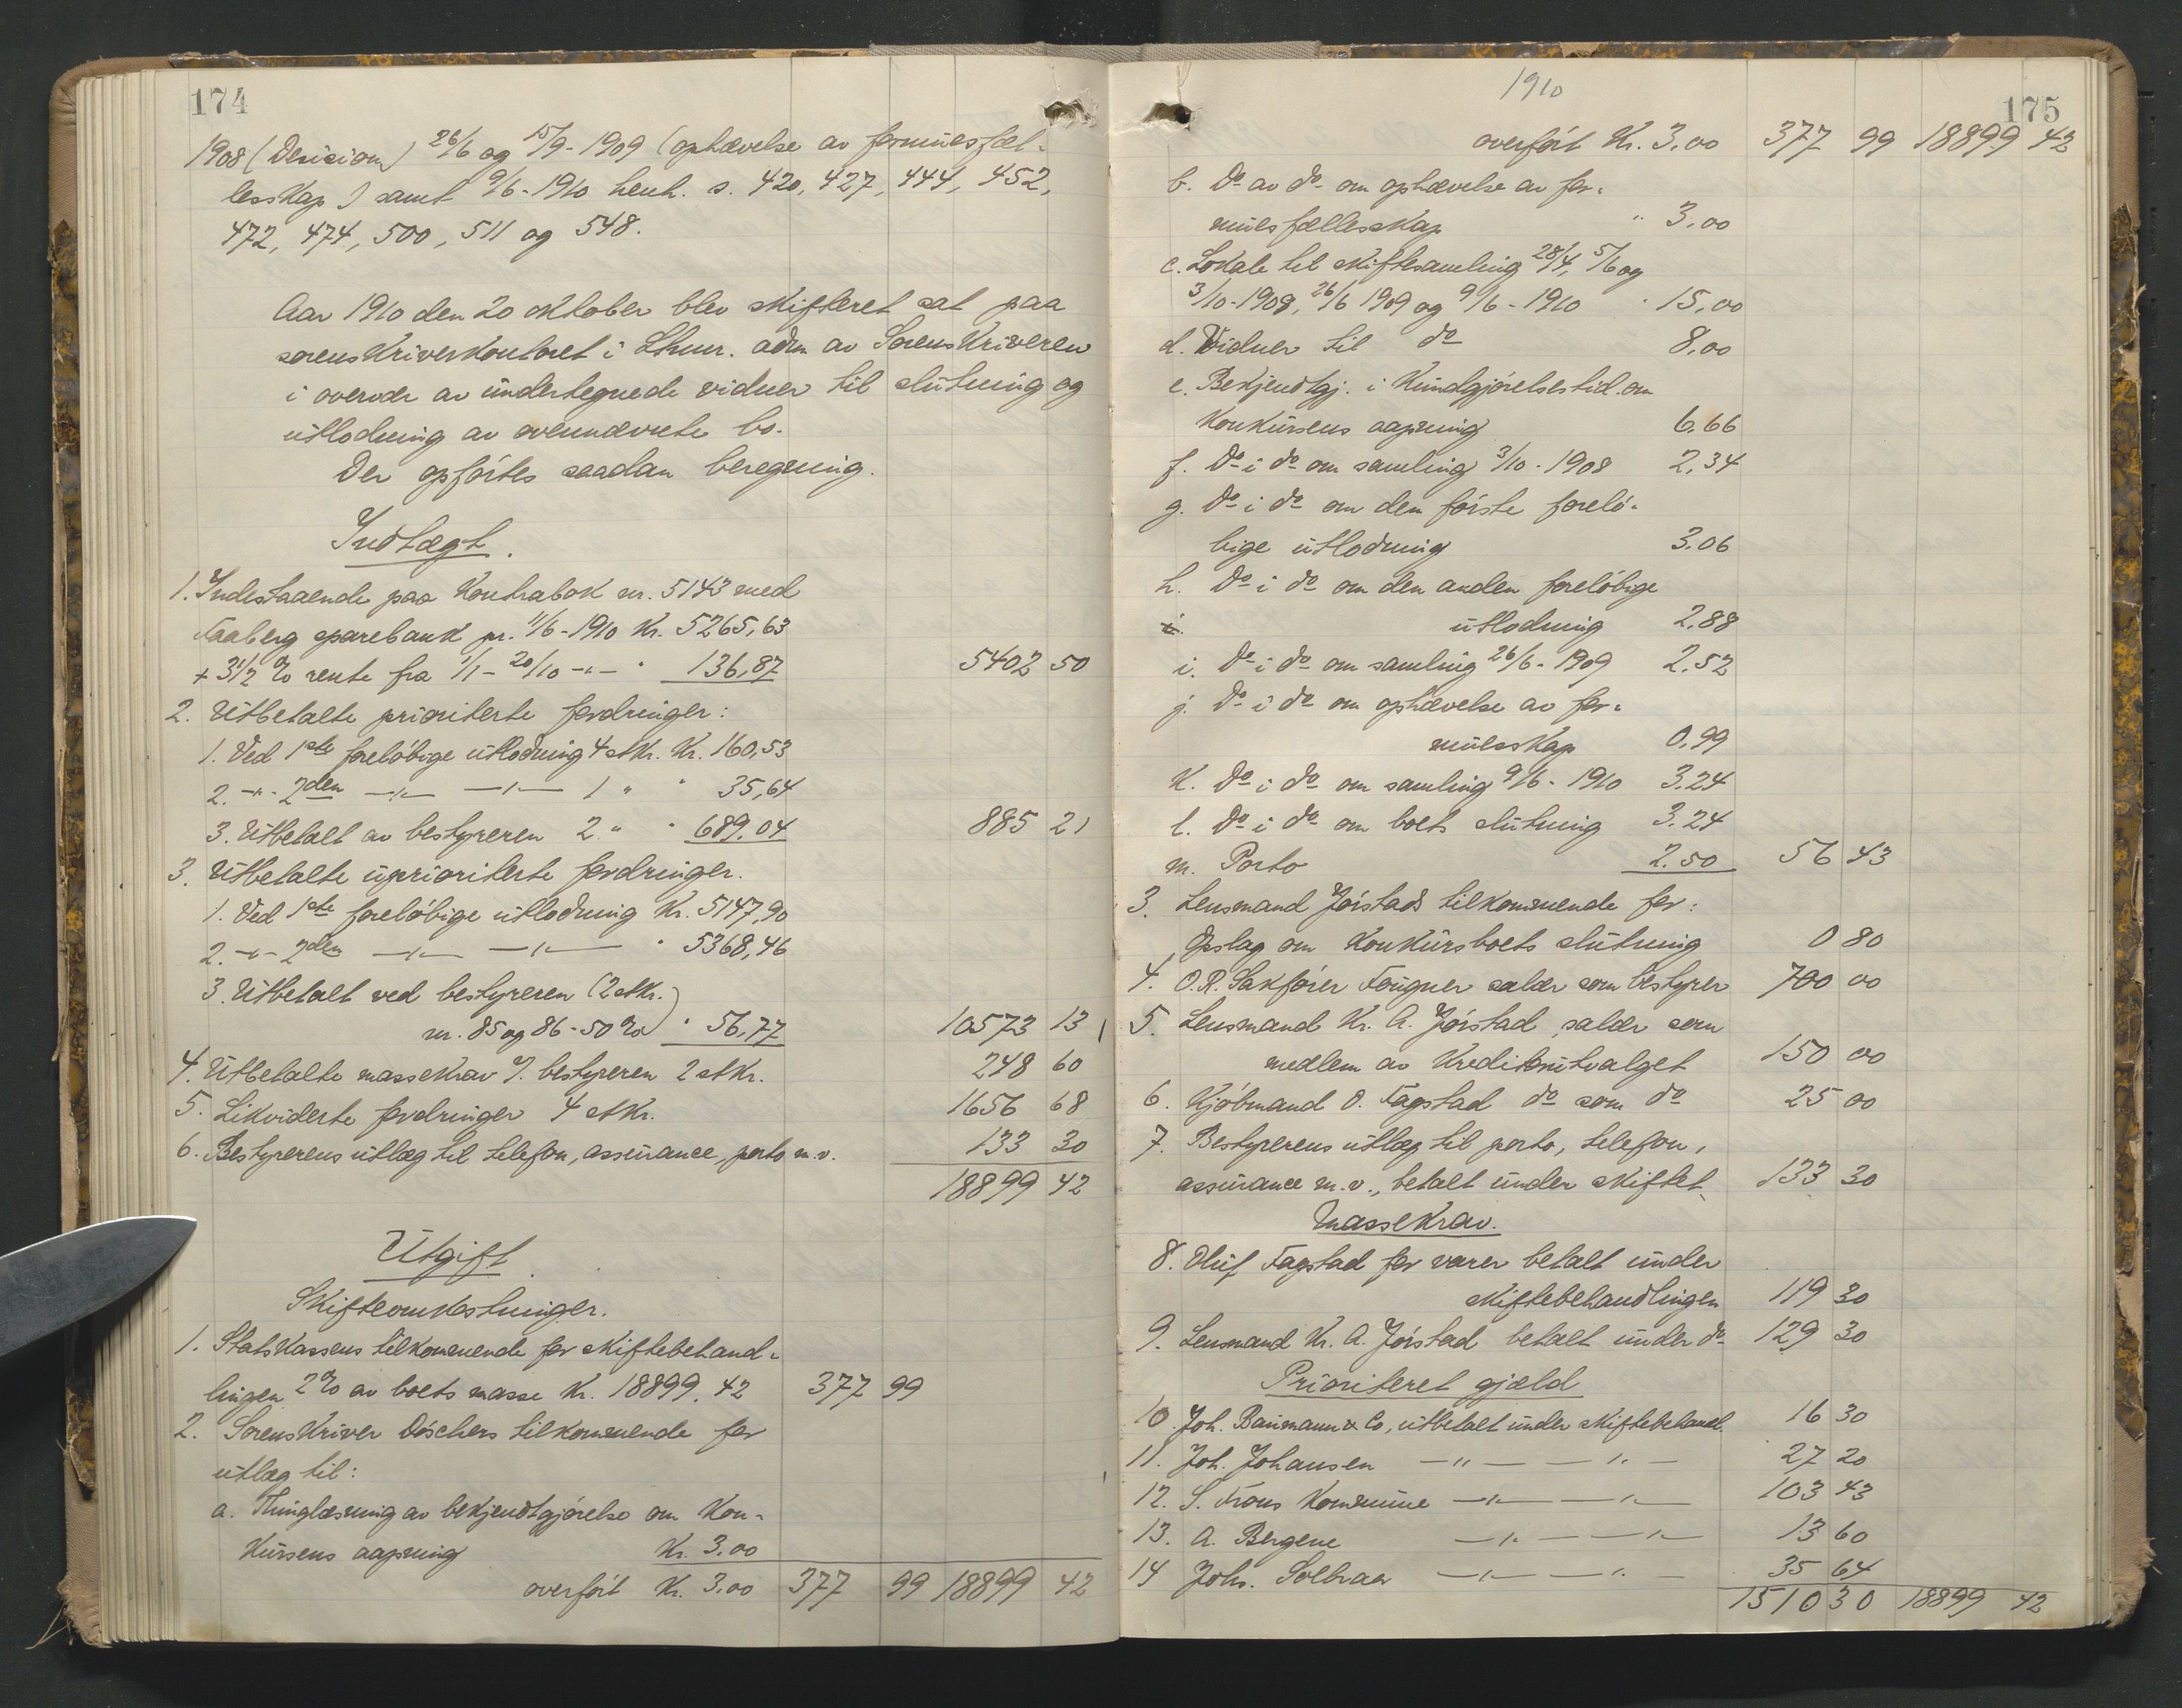 174
1908 (Decision) 26/6 og 15/9 - 1909 (ophævelse av formuesfæl-
lesskap) samt 9/6 - 1910 henh. s. 420, 427, 444, 452,
472, 474, 500, 511 og 548.
Aar 1910 den 20 oktober blev skifteret sat paa
sorenskriverkontoret i Lhmr. adm av Sorenskriveren
i overvær av undertegnede vidner til slutning og
utlodning av ovennævnte bo.
Der opførtes saadan beregning.
Indtægt.
1. Indestaaende paa Kontrabok nr. 5143 med
Faaberg sparebank pr. 11/6 - 1910 Kr. 5265,63
+ 3 1/2 % rente fra 1/1 - 20/10 -"- " 136,87 5402 50
2. Utbetalte prioriterte fordringer:
1. Ved 1ste foreløbige utlodning 4 stkr. Kr. 160,53
2. -"- 2den -"- -"- 1 " " 35,64
3. Utbetalt av bestyreren 2. " " 689.04 885 21
3. Utbetalte uprioriterte fordringer.
1. Ved 1ste foreløbige utlodning Kr. 5147,90
2. -"- 2den -"- -"- " 5368,46
3. Utbetalt ved bestyreren (2 stkr.)
nr. 85 og 86 - 50 % " 56,77 10573 13
4. Utbetalte massekrav %. bestyreren 2 stkr. 248 60
5. Likviderte fordringer 4 stkr. 1656 68
6. Bestyrerens utlæg til telefon, assurance, porto m.v. 133 30
18899 42
Utgift.
Skifteomkostninger.
1. Statskassens tilkommende for skiftebehand-
lingen 2 % av boets masse Kr. 18899.42 377 99
2. Sorenskriver Döschers tilkommende for
utlæg til:
a. Thinglæsning av bekjendtgjørelse om kon-
kursens aapning Kr. 3.00
overført Kr. 3.00 377 99 18899 42
1910
175
overført Kr. 3.00 377 99 18899 42
b. do av do om ophævelse av for-
muesfællesskap " 3.00
c. Lokale til skiftesamling 28/4, 5/6 og
3/10 - 1908, 26/6 1909 og 9/6 - 1910 " 15,00
d. Vidner til do 8,00
e. Bekjendtgj. i Kundgjørelsestid. om
konkursens aapning 6.66
f. do i do om samling 3/10 - 1908 2,34
g. do i do om den første forelø-
bige utlodning 3.06
h. do i do om den anden foreløbige
i. utlodning 2.88
i. do i do om samling 26/6 - 1909 2.52
j. do i do om ophævelse av for-
muesskap 0.99
k. do i do om samling 9/6 - 1910 3.24
l. do i do om boets slutning 3.24
m. Porto 2.50 56 43
3. Lensmand Jørstads tilkommende for:
Opslag om konkursboets slutning 0 80
4. O.R. Sakfører Fougner salær som bestyrer 700 00
5. Lensmand Kr. A. Jørstad, salær som
medlem av Kreditorutvalget 150 00
6. Kjøbmand O. Fagstad do som do 25 00
7. Bestyrerens utlæg til porto, telefon,
assurance m.v., betalt under skiftet 133 30
Massekrav.
8. Oluf Fagstad for varer betalt under
skiftebehandlingen 119 30
9. Lensmand Kr. A. Jørstad betalt under do 129 30
Prioriteret gjæld
10 Joh. Baumann & Co, utbetalt under skiftebehandl. 16 30
11. Joh. Johansen -"- -"- 27 20
12. S. Frons kommune -"- -"- 103 43
13. A. Bergene -"- -"- 13 60
14 Johs. Solbraa -"- -"- 35 64
1510 30 18899 42